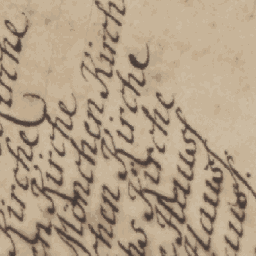 irche
Kirche
n Kirche
Mönchen Kirch
chen Kirche
hs Kirche
Hauß
Hauß
auß.